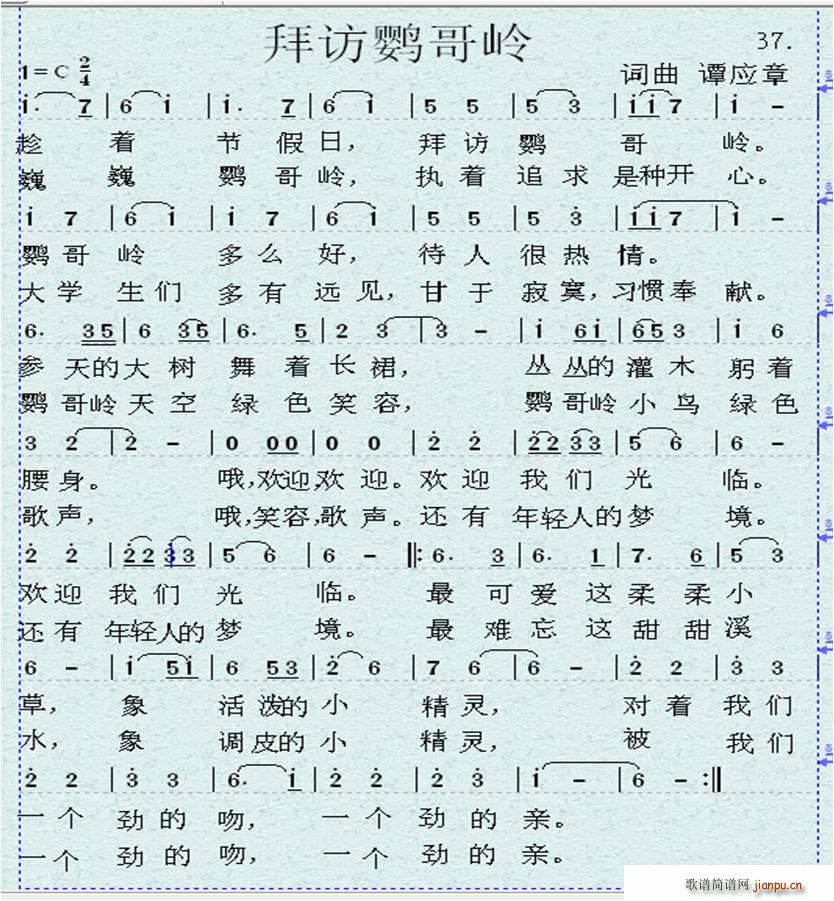 拜访鹦哥岭
37.
1=C 2/4
词曲 谭应章
i· 7 | 6 i | i· 7 | 6 i | 5 5 | 5 3 | i i 7 | i - 
趁 着 节 假 日, 拜 访 鹦 哥 岭。
巍 巍 鹦 哥 岭, 执 着 追 求 是种开 心。
i 7 | 6 i | i 7 | 6 i | 5 5 | 5 3̇ | i i 7 | i -
鹦 哥 岭 多 么 好, 待 人 很 热 情。
大 学 生 们 多 有 远 见, 甘 于 寂 寞, 习 惯 奉 献。
6· 35 | 6 35 | 6· 5 | 2 3 | 3 - | i 6i | 65 3 | i 6
参 天的 大 树 舞 着 长 裙, 丛 丛的 灌 木 躬 着
鹦 哥岭 天 空 绿 色 笑 容, 鹦 哥岭 小 鸟 绿 色
3 2 | 2 - | 0 00 | 0 0 | 2̇ 2̇ | 2̇2̇ 3̇3̇ | 5 6 | 6 -
腰 身。 哦, 欢迎, 欢 迎。 欢 迎 我 们 光 临。
歌 声, 哦, 笑容, 歌 声。 还 有 年轻人的 梦 境。
2̇ 2̇ | 2̇2̇ 3̇3̇ | 5 6 | 6 - ‖: 6· 3 | 6· 1 | 7· 6 | 5 3
欢 迎 我 们 光 临。 最 可 爱 这 柔 柔 小
还 有 年轻人的 梦 境。 最 难 忘 这 甜 甜 溪
6 - | i 5i | 6 53 | 2̇ 6 | 7 6 | 6 - | 2̇ 2 | 3̇ 3
草, 象 活 泼的 小 精 灵, 对 着 我 们
水, 象 调 皮的 小 精 灵, 被 我 们
2̇ 2 | 3̇ 3 | 6· i | 2̇ 2̇ | 2̇ 3̇ | i - | 6 - :‖
一 个 劲 的 吻, 一 个 劲 的 亲。
一 个 劲 的 吻, 一 个 劲 的 亲。
歌谱简谱网 jianpu.cn